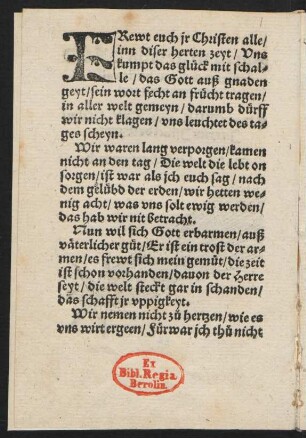 FRewt euch jr Christen alle/
inn diser herten zeyt/ Vns
kumpt das glück mit schal-
le/ das Gott auß gnaden
geyt/sein wort fecht an frücht tragen/
in aller welt gemeyn/ darumb dürff
wir nicht klagen/ vns leuchtet des ta-
ges scheyn.
Wir waren lang verporgen/kamen
nicht an den tag/ Die welt die lebt on
sorgen/ist war als jch euch sag/ nach
dem gelübd der erden/ wir hetten we-
nig acht/ was vns solt ewig werden/
das hab wir nit betracht.
Nun wil sich Gott erbarmen/auß
väterlicher güt/Er ist ein trost der ar-
men/es frewt sich mein gemüt/die zeit
ist schon vorhanden/dauon der Herre
seyt/ die welt steckt gar in schanden/
das schafft jr vppigkeyt.
Wir nemen nicht zů hertzen/ wie es
vns wirt ergeen/ Fürwar jch thů nicht
Ex
Bibl. Regia
Berolin.